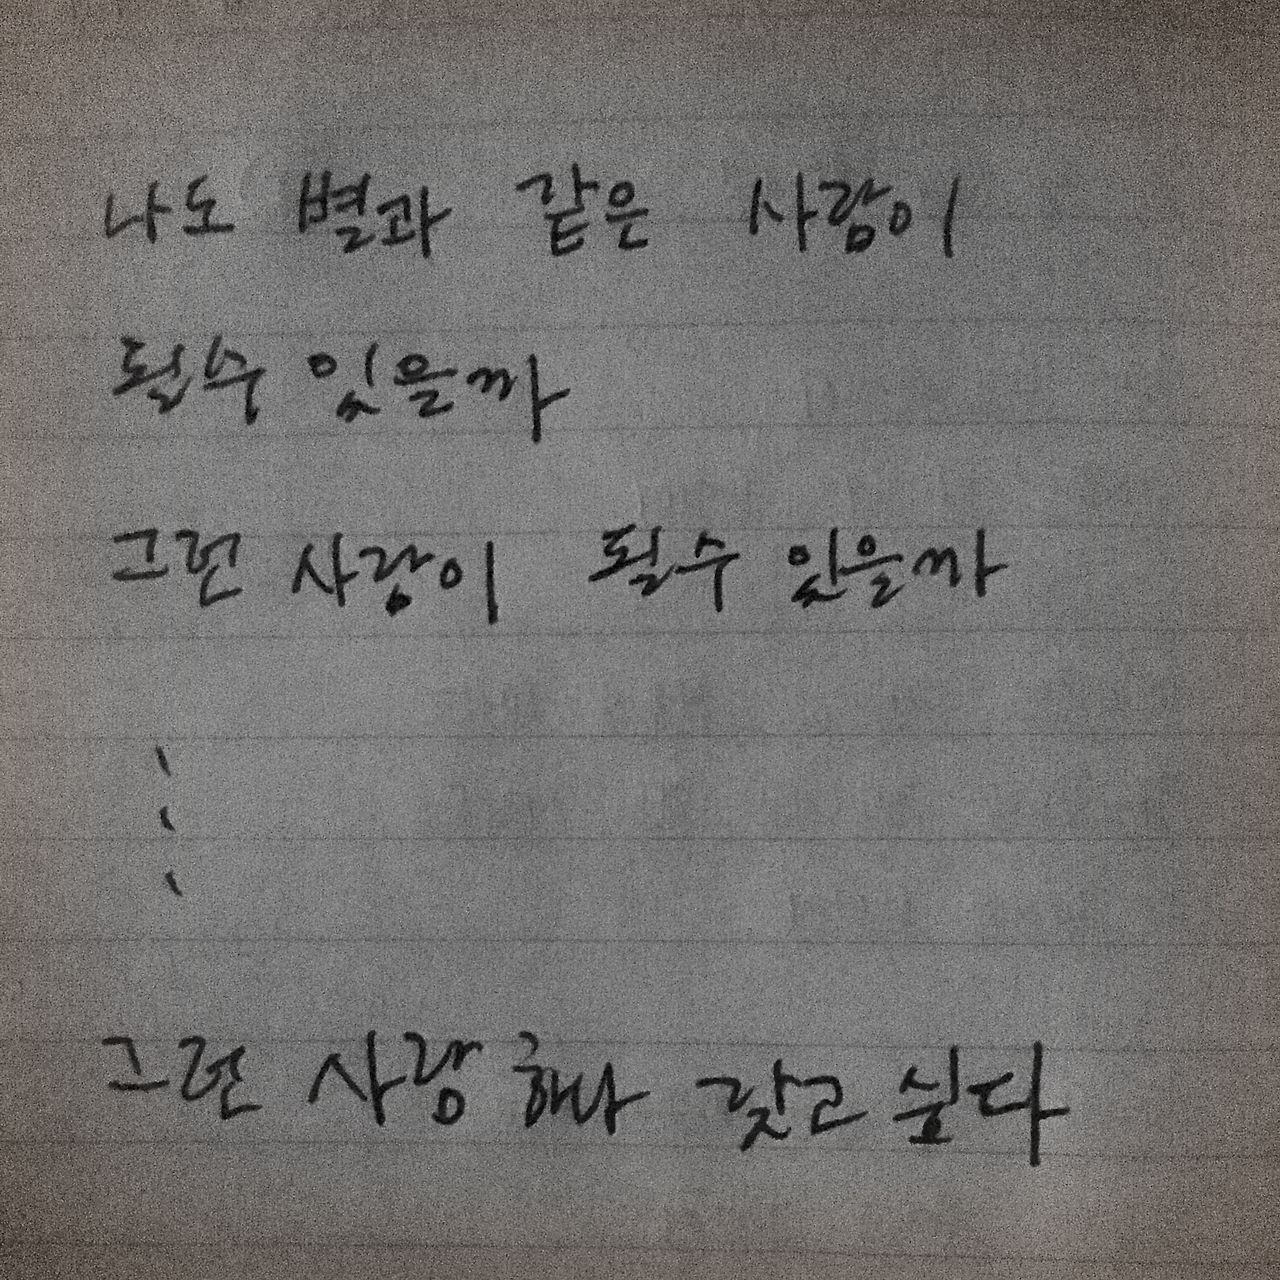 나도 별과 같은 사람이
될수 있을까
그런 사랑이 될수 있을까
⋮
그런 사랑 하나 갖고 싶다